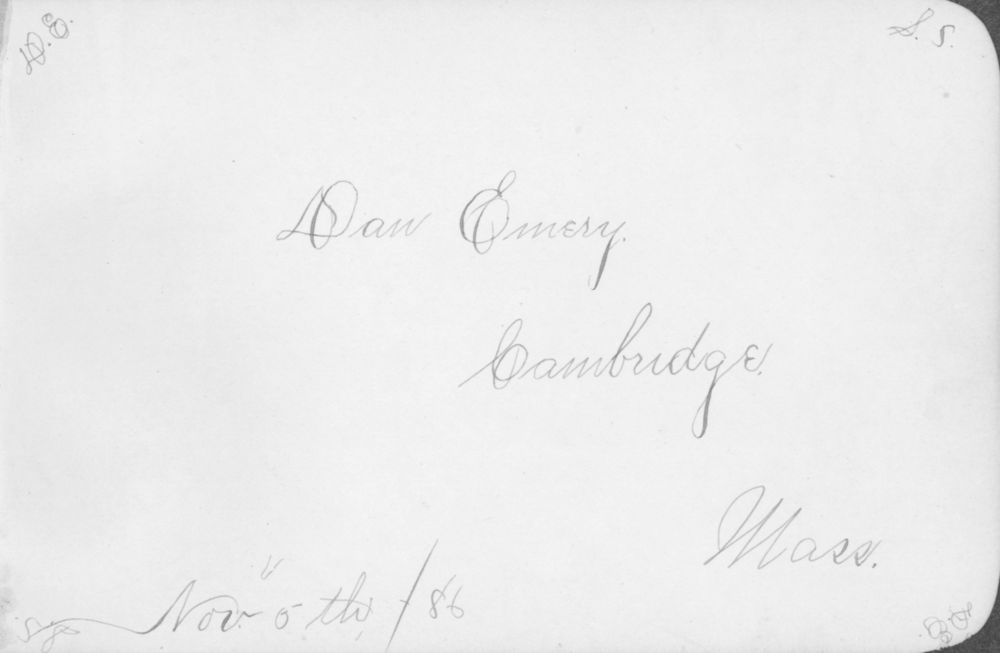 D.E.
S. S.
Dan Emery.
Cambridge.
Mass.
Nov. "5 th, / 86